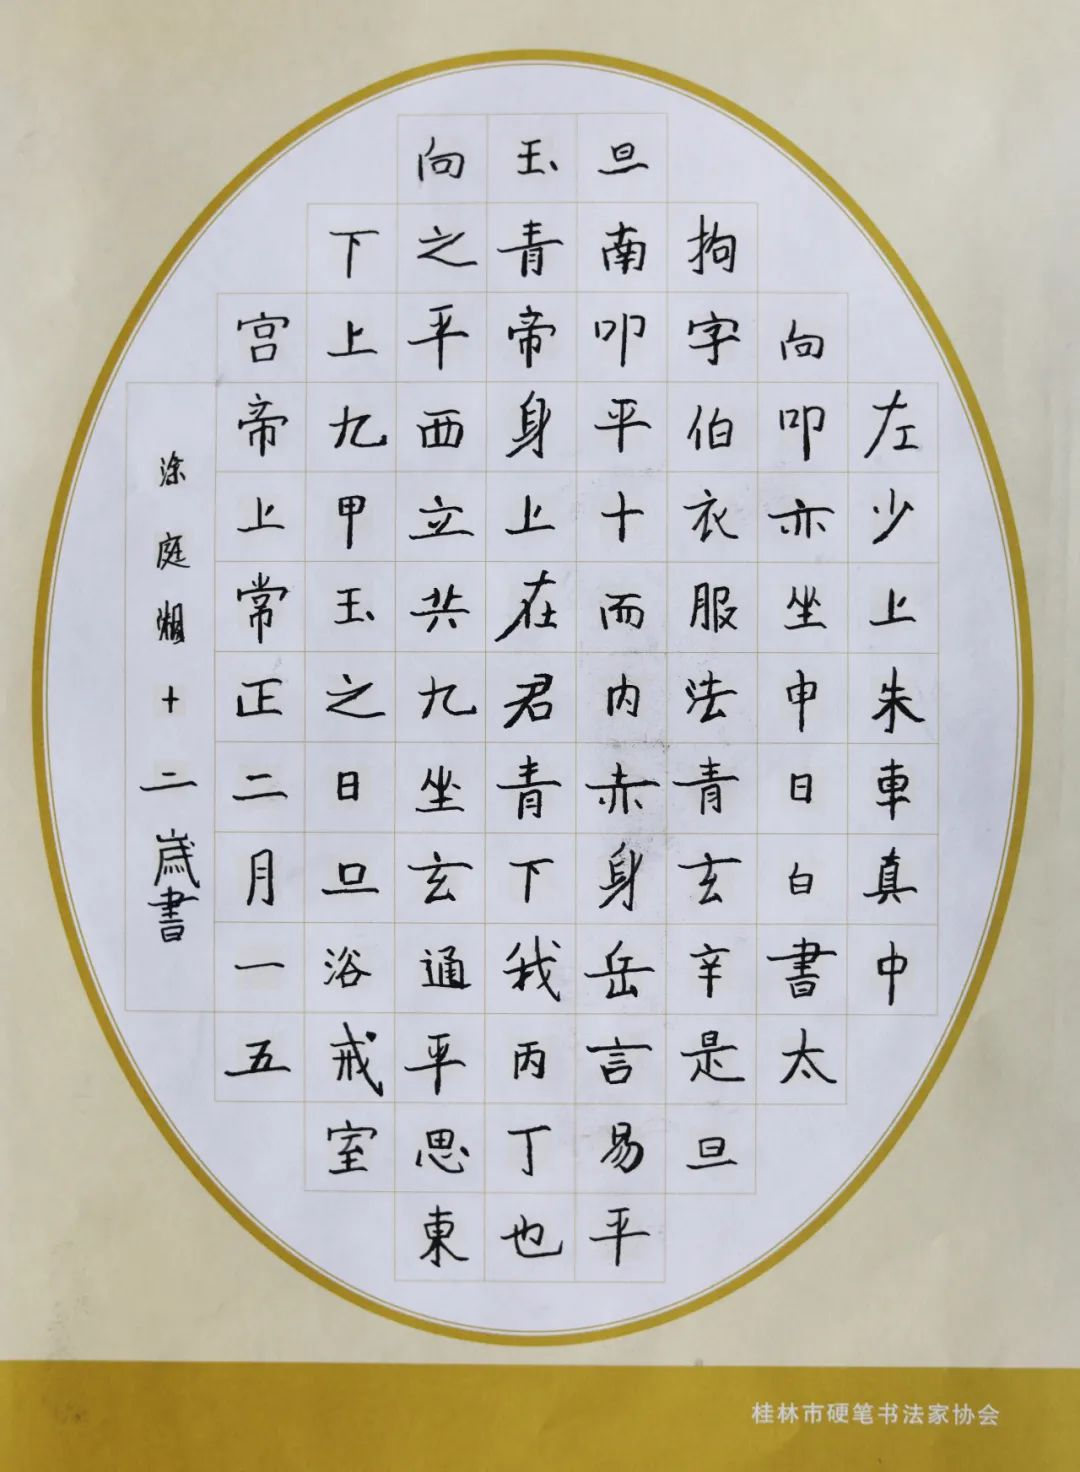 左少上朱車真中
向叩亦坐申日白書太
拘字伯衣服法青玄辛是旦
旦南叩平十而内赤身岳言易平
玉青帝身上在君青下我丙丁也
向之平西立共九坐玄通平思東
下上九甲玉之日口浴戒室
宫帝上常正二月一五
涂庭烟十二歲書
桂林市硬笔书法家协会